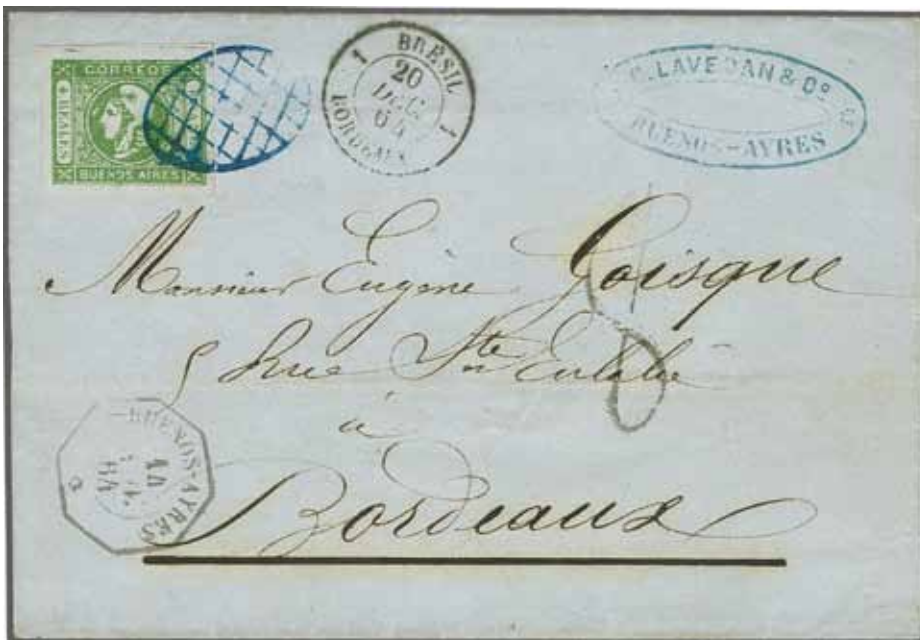 CORREOS
REALES
BUENOS AIRES
1 BRESIL 1
20
DEC.
64
BORDEAUX
LAVEDAN & Co
BUENOS-AYRES
Monsieur Eugène Goisque
5 Rue Ste Eulalie
à
Bordeaux
8
BUENOS-AYRES
14
64